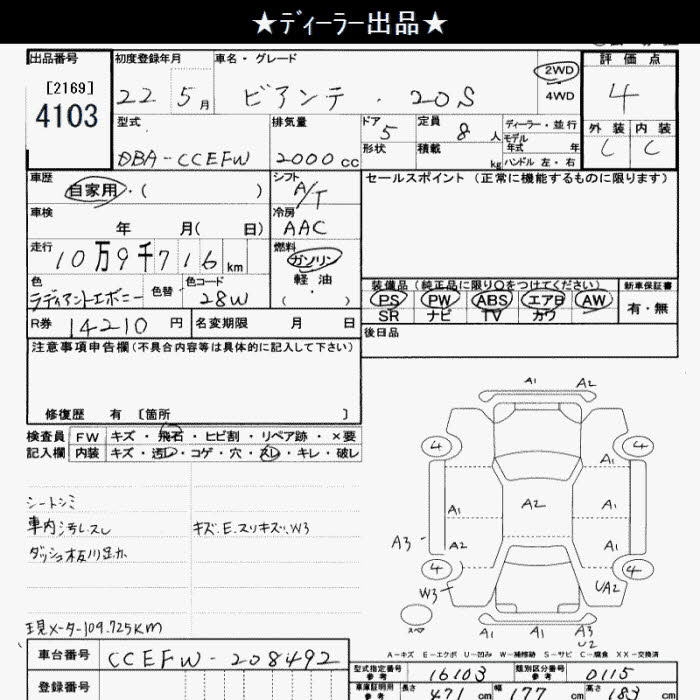 ★ディーラー出品★
出品番号
[2169]
4103
初度登録年月
22 5月
車名・グレード
ビアンテ・20S
2WD
4WD
評価点
4
外装 内装
C C
型式
DBA-CCEFW
排気量
2000cc
ドア
5
形状
定員
8人
積載
kg
ディーラー・並行
モデル
年式 年
ハンドル 左・右
車歴
自家用・( )
シフト
A/T
セールスポイント(正常に機能するものに限ります)
車検
年 月( 日)
冷房
AAC
走行
10万9千716km
燃料
ガソリン
軽油
( ・ )
色
ラディアントエボニー
色替
色コード
28W
装備品(純正品に限り○をつけてください)
PS PW ABS エアB AW
SR ナビ TV カワ
新車保証書
有・無
R券 14210円
名変期限 月 日
後日品
注意事項申告欄(不具合内容等は具体的に記入して下さい)
修復歴 有〔箇所 〕
検査員
記入欄
FW キズ・飛石・ヒビ割・リペア跡・×要
内装 キズ・汚レ・コゲ・穴・スレ・キレ・破レ
シートシミ
車内汚レスレ
キズ.E.スリキズ.W3
現メーター109.725KM
A1 A2
4 4
A1
A1 A2 A1
A3 A2 A1
4 4
W3 UA2
スペア
A1 A1 A3
U2
A-キズ E-エクボ U-凹み W-補修跡 S-サビ C-腐食 XX-交換済
車台番号
CCEFW-208492
登録番号
型式指定番号
参考
16103
類別区分番号
参考
0115
車庫証明用
参考
長さ
471cm
幅
177cm
高さ
183cm